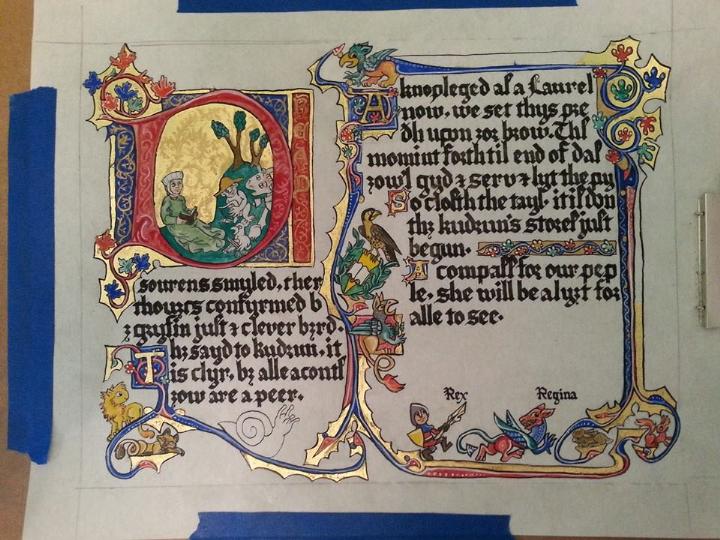 D
sourens smyled, ther
thowts confyrmed b
z gryfin just z clever bzrd.
Thz sayd to kudrun, it
is clyr. bz alle
zow are a peer.
Aknowleged as a Laurel
now, we set thys
upon zor brow. Ths
momint forth til end of das
zow'l gyd z serv z lyt the
So closth the tayl. it is
thz kudrun's stores just
begun.
A compass for our pep
le, she will be a lyzt for
alle to see.
Rex Regina